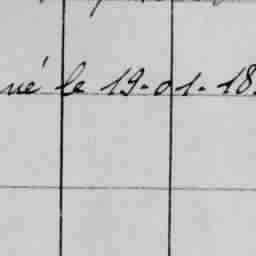 né le 19-01-18